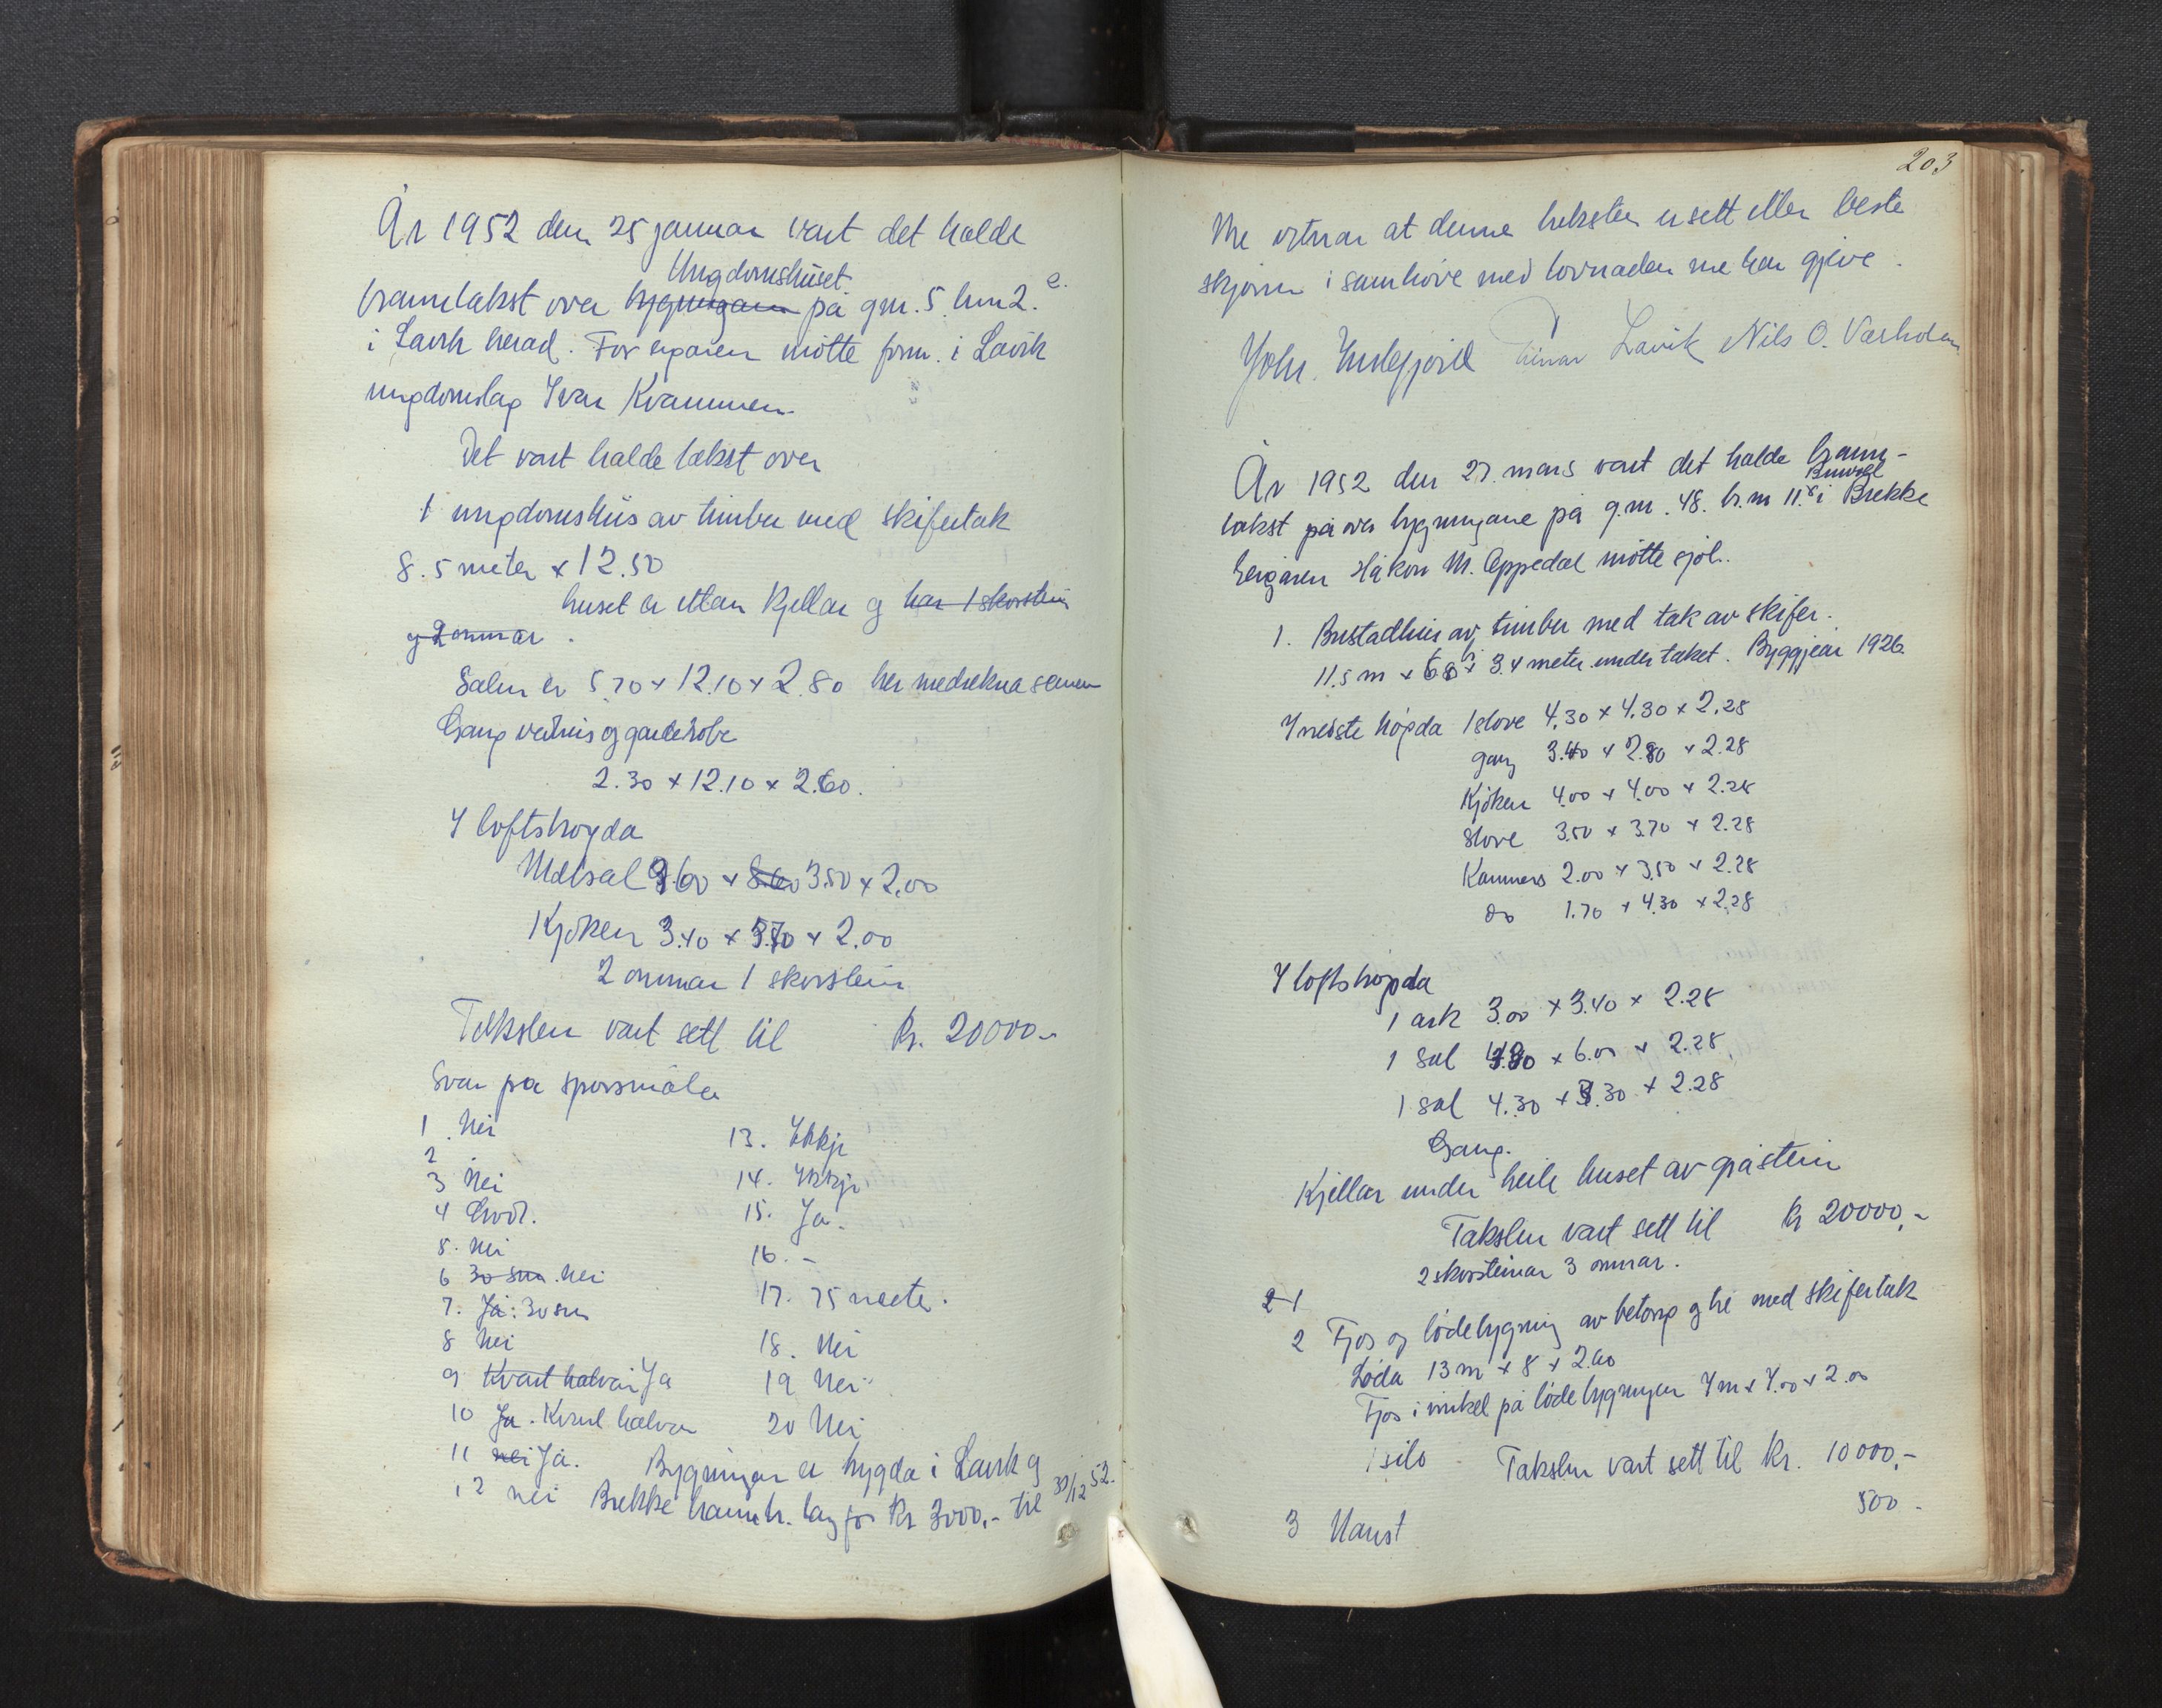 År 1952 den 25 januar vart det halde
Ungdomshuset
branntakst over bygningane på gnr. 5 bnr 2. e.
i Lavik herad. For eigaren møtte form. i Lavik
ungdomslag Ivar Kvammen.
Det vart halde takst over
1 ungdomshus av timber med skifertak
8.5 meter x 12.50
huset er uttan kjellar og har 1 skorstein
og 2 omnar.
Salen er 5.70 x 12.10 x 2.80 her medrekna scenen
Gang vedhus og garderobe
2.30 x 12.10 x 2.60.
I loftshøgda
Matsal 9.60 x 8.60 3.50 x 2.00
Kjøken 3.40 x 3.70 x 2.00
2 omnar 1 skorstein
Taksten vart sett til Kr. 20000.-
Svar på spørsmåla
1. Nei
2
3 Nei
4 Godt.
5. Nei
6 30 sm. Nei
7. Ja: 30 sm
8 Nei
9 Kvart halvår Ja
10 Ja. Kvart halvår
11 nei Ja.
12 nei
13. Ikkje
14. Ikkje
15. Ja.
16. -
17. 75 meter.
18. Nei
19 Nei
20 Nei
Bygningen er trygda i Lavik og
Brekke branntr. lag for Kr 3000,- til 30/12 52.
203
Me vitnar at denne taksten er sett etter beste
skjønn i samhøve med lovnaden me har gjeve.
John Indrefjord Einar Lavik Nils O. Værholm
År 1952 den 27. mars vart det halde brann-
takst på over bygningane på g.nr. 48. br.nr 11. i Brekke
Eigaren Håkon M. Oppedal møtte sjøl.
1. Bustadhus av timber med tak av skifer.
11.5 m x 6.8 x 3.4 meter under taket. Byggjeår 1926.
I nedste høgda 1 stove 4.30 x 4.30 x 2.28
gang 3.40 x 2.80 x 2.28
Kjøken 4.00 x 4.00 x 2.28
Stove 3.50 x 3.70 x 2.28
Kammers 2.00 x 3.50 x 2.28
do 1.70 x 4.30 x 2.28
I loftshøgda
1 ark 3.00 x 3.40 x 2.28
1 sal x 6.00 x 2.28
1 sal 4.30 x 3.30 x 2.28
Gang.
Kjellar under heile huset av gråstein
Taksten vart sett til kr 20000,-
2 skorsteinar 3 omnar.
2 1
2 Fjos og lødebygning av betong og tre med skifertak
Løda 13 m x 8 x 2.60
Fjos i vinkel på lødebygningen 7 m x 7.00 x 2.00
1 silo Taksten vart sett til Kr. 10000,-
3 Naust 500.-